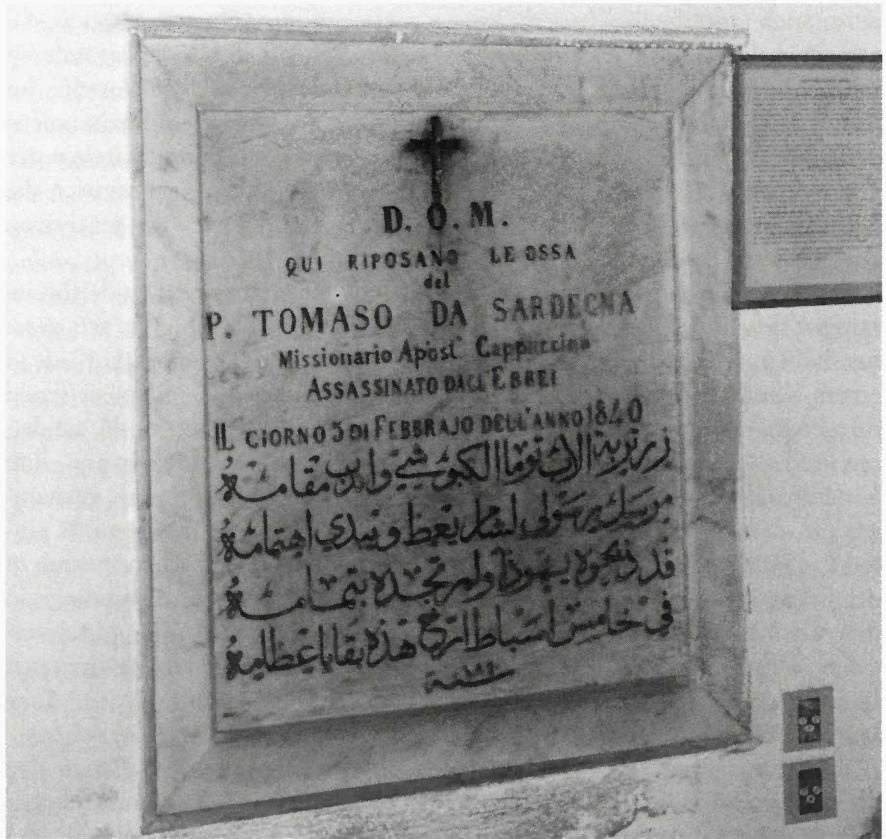 D. O. M.
QUI RIPOSANO LE OSSA
del
P. TOMASO DA SARDEGNA
Missionario Apost° Cappuccino
ASSASSINATO DAGL'EBREI
IL GIORNO 5 DI FEBBRAJO DELL'ANNO 1840
زر تربة الاب توما الكبوشي واندب مقامه
مرسل رسولي لشام يعظ ويبدي اهتمامه
قد ذبحوه يهودنا ولم تجده بتمامه
في خامس اشباط ارخ هذه بقايا عظامه
سنة